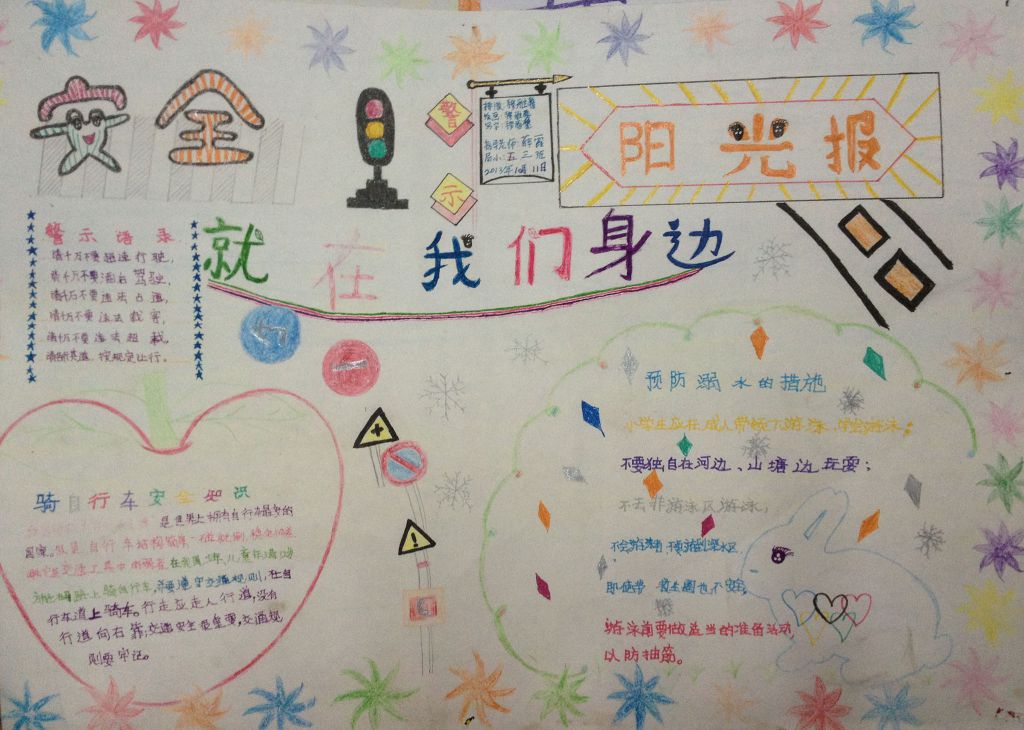 安全
警
示
五三班
2013年10月11日
阳光报
就在我们身边
警示语录
请千万不要超速行驶,
请千万不要酒后驾驶,
请千万不要违法占道,
请千万不要违法载客,
请千万不要违法超载,
按规定让行。
预防溺水的措施
小学生应在成人带领下游泳,学会游泳;
不要独自在河边、山塘边玩耍;
不去非游泳区游泳;
不会游泳者,不要游到深水区,
即使带救生圈也不安全;
游泳前要做适当的准备活动,
以防抽筋。
骑自行车安全知识
是世界上拥有自行车最多的
国家。
自行车,要遵守交通规则,在自
行车道上骑车。行走应走人行道,没有
行道向右靠;交通安全很重要,交通规
则要牢记。